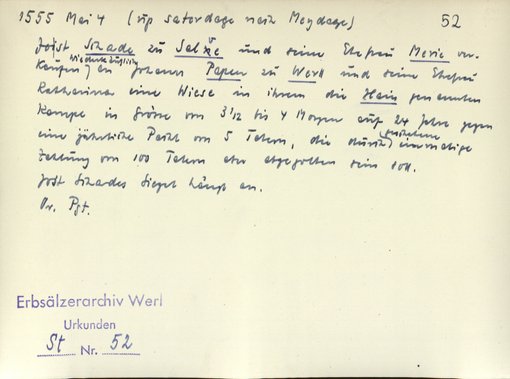 1555 Mai 4 (up saterdage nach Meydage) 52
Jost Schade zu Salxe und seine Ehefrau Merie ver-
kaufen (wiederkäuflich) an Johann Papen zu Werll und seine Ehefrau
Katharina eine Wiese in ihrem die Hain genannten
Kampe in Grösse von 3 1/2 bis 4 Morgen auf 24 Jahre gegen
eine jährliche Pacht von 5 Talern, die durch geschehene einmalige
Zahlung von 100 Talern aber abgegolten sein soll.
Jost Schades Siegel hängt an.
Or. Pgt.
Erbsälzerarchiv Werl
Urkunden
St Nr. 52